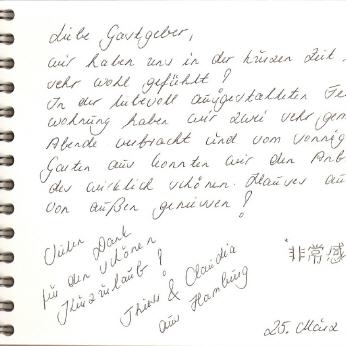 Liebe Gastgeber,
wir haben uns in der kurzen Zeit
sehr wohl gefühlt!
In der liebevoll ausgestatteten Fe
wohnung haben wir zwei sehr gem
Abende verbracht und vom sonnig
Garten aus konnten wir den Anb
des wirklich schönen Hauses au
von außen genießen!
Vielen Dank
für den schönen
Kurzurlaub!
& Claudia
aus Hamburg
非常感
25. März